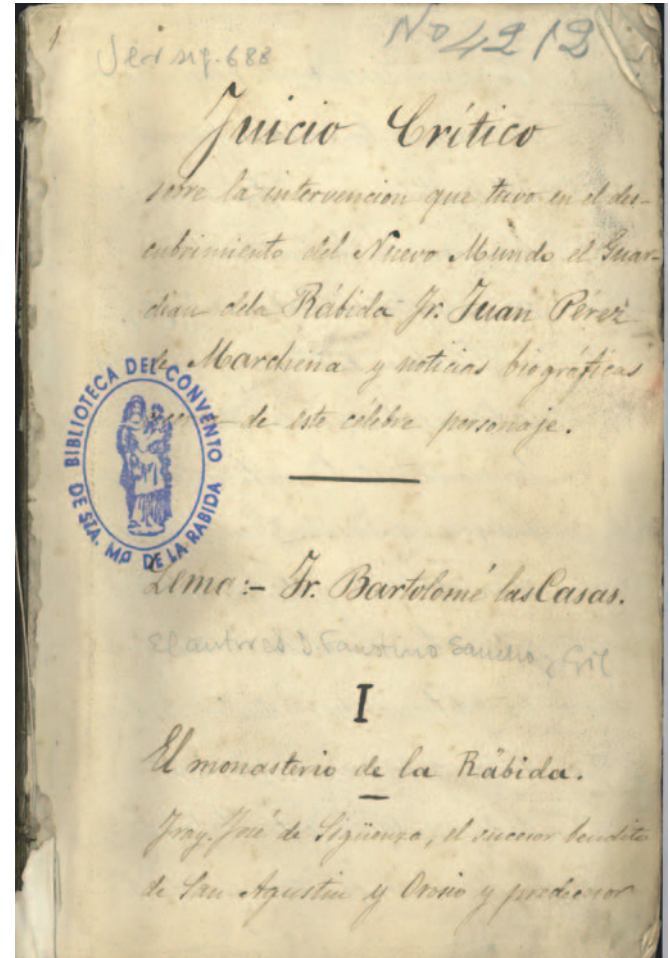 1
sig. 688
Nº 4212
Juicio Crítico
sobre la intervencion que tuvo en el des-
cubrimiento del Nuevo Mundo el Guar-
dian dela Rábida Fr. Juan Pérez
de Marchena y noticias biográficas
de este célebre personaje.
BIBLIOTECA DEL CONVENTO
DE STA. Mª DE LA RABIDA
Lema:- Fr. Bartolomé las Casas.
El autor es D. Faustino Sancho y Gil
I
El monasterio de la Rábida.
Fray José de Sigüenza, el sucesor bendito
de San Agustin y Orosio y predecesor